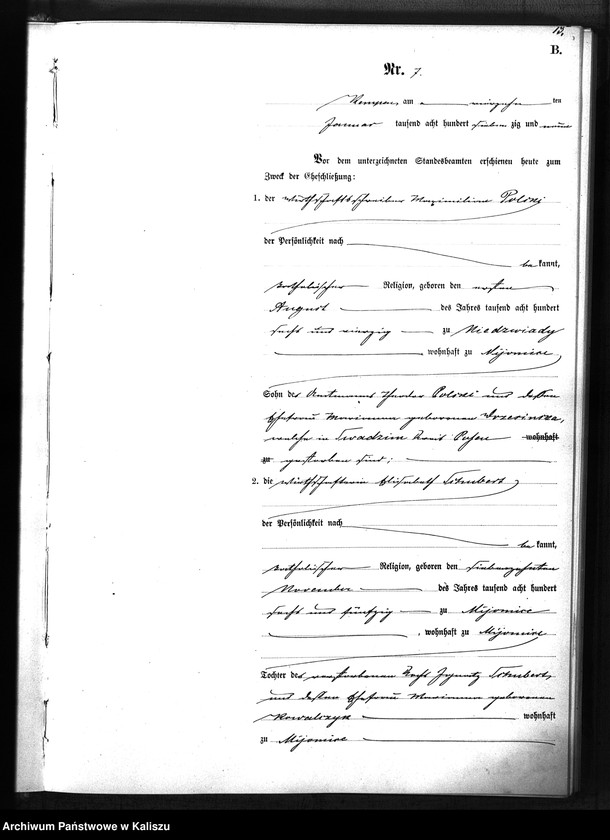 15.
B.
Nr. 7.
Kempen, am vierzehn ten
Januar tausend acht hundert sieben zig und neun
Vor dem unterzeichneten Standesbeamten erschienen heute zum
Zweck der Eheschließung:
1. der Wirthschaftsschreiber Maximilian Polski
der Persönlichkeit nach
be kannt,
katholischer Religion, geboren den ersten
August des Jahres tausend acht hundert
sechs und vierzig zu Niedzwiady
wohnhaft zu Mijomice
Sohn des Amtmanns Theodor Polski und dessen
Ehefrau Marianna geborenen
welche in Kreis Posen wohnhaft
zu gestorben sind;
2. die Wirthschafterin Elisabeth Schubert
der Persönlichkeit nach
be kannt,
katholischer Religion, geboren den siebenzehnten
November des Jahres tausend acht hundert
sechs und fünfzig zu Mijomice
, wohnhaft zu Mijomice
Tochter des verstorbenen Ignatz Schubert,
und dessen Ehefrau Marianna geborenen
Kowalczyk wohnhaft
zu Mijomice
Archiwum Państwowe w Kaliszu